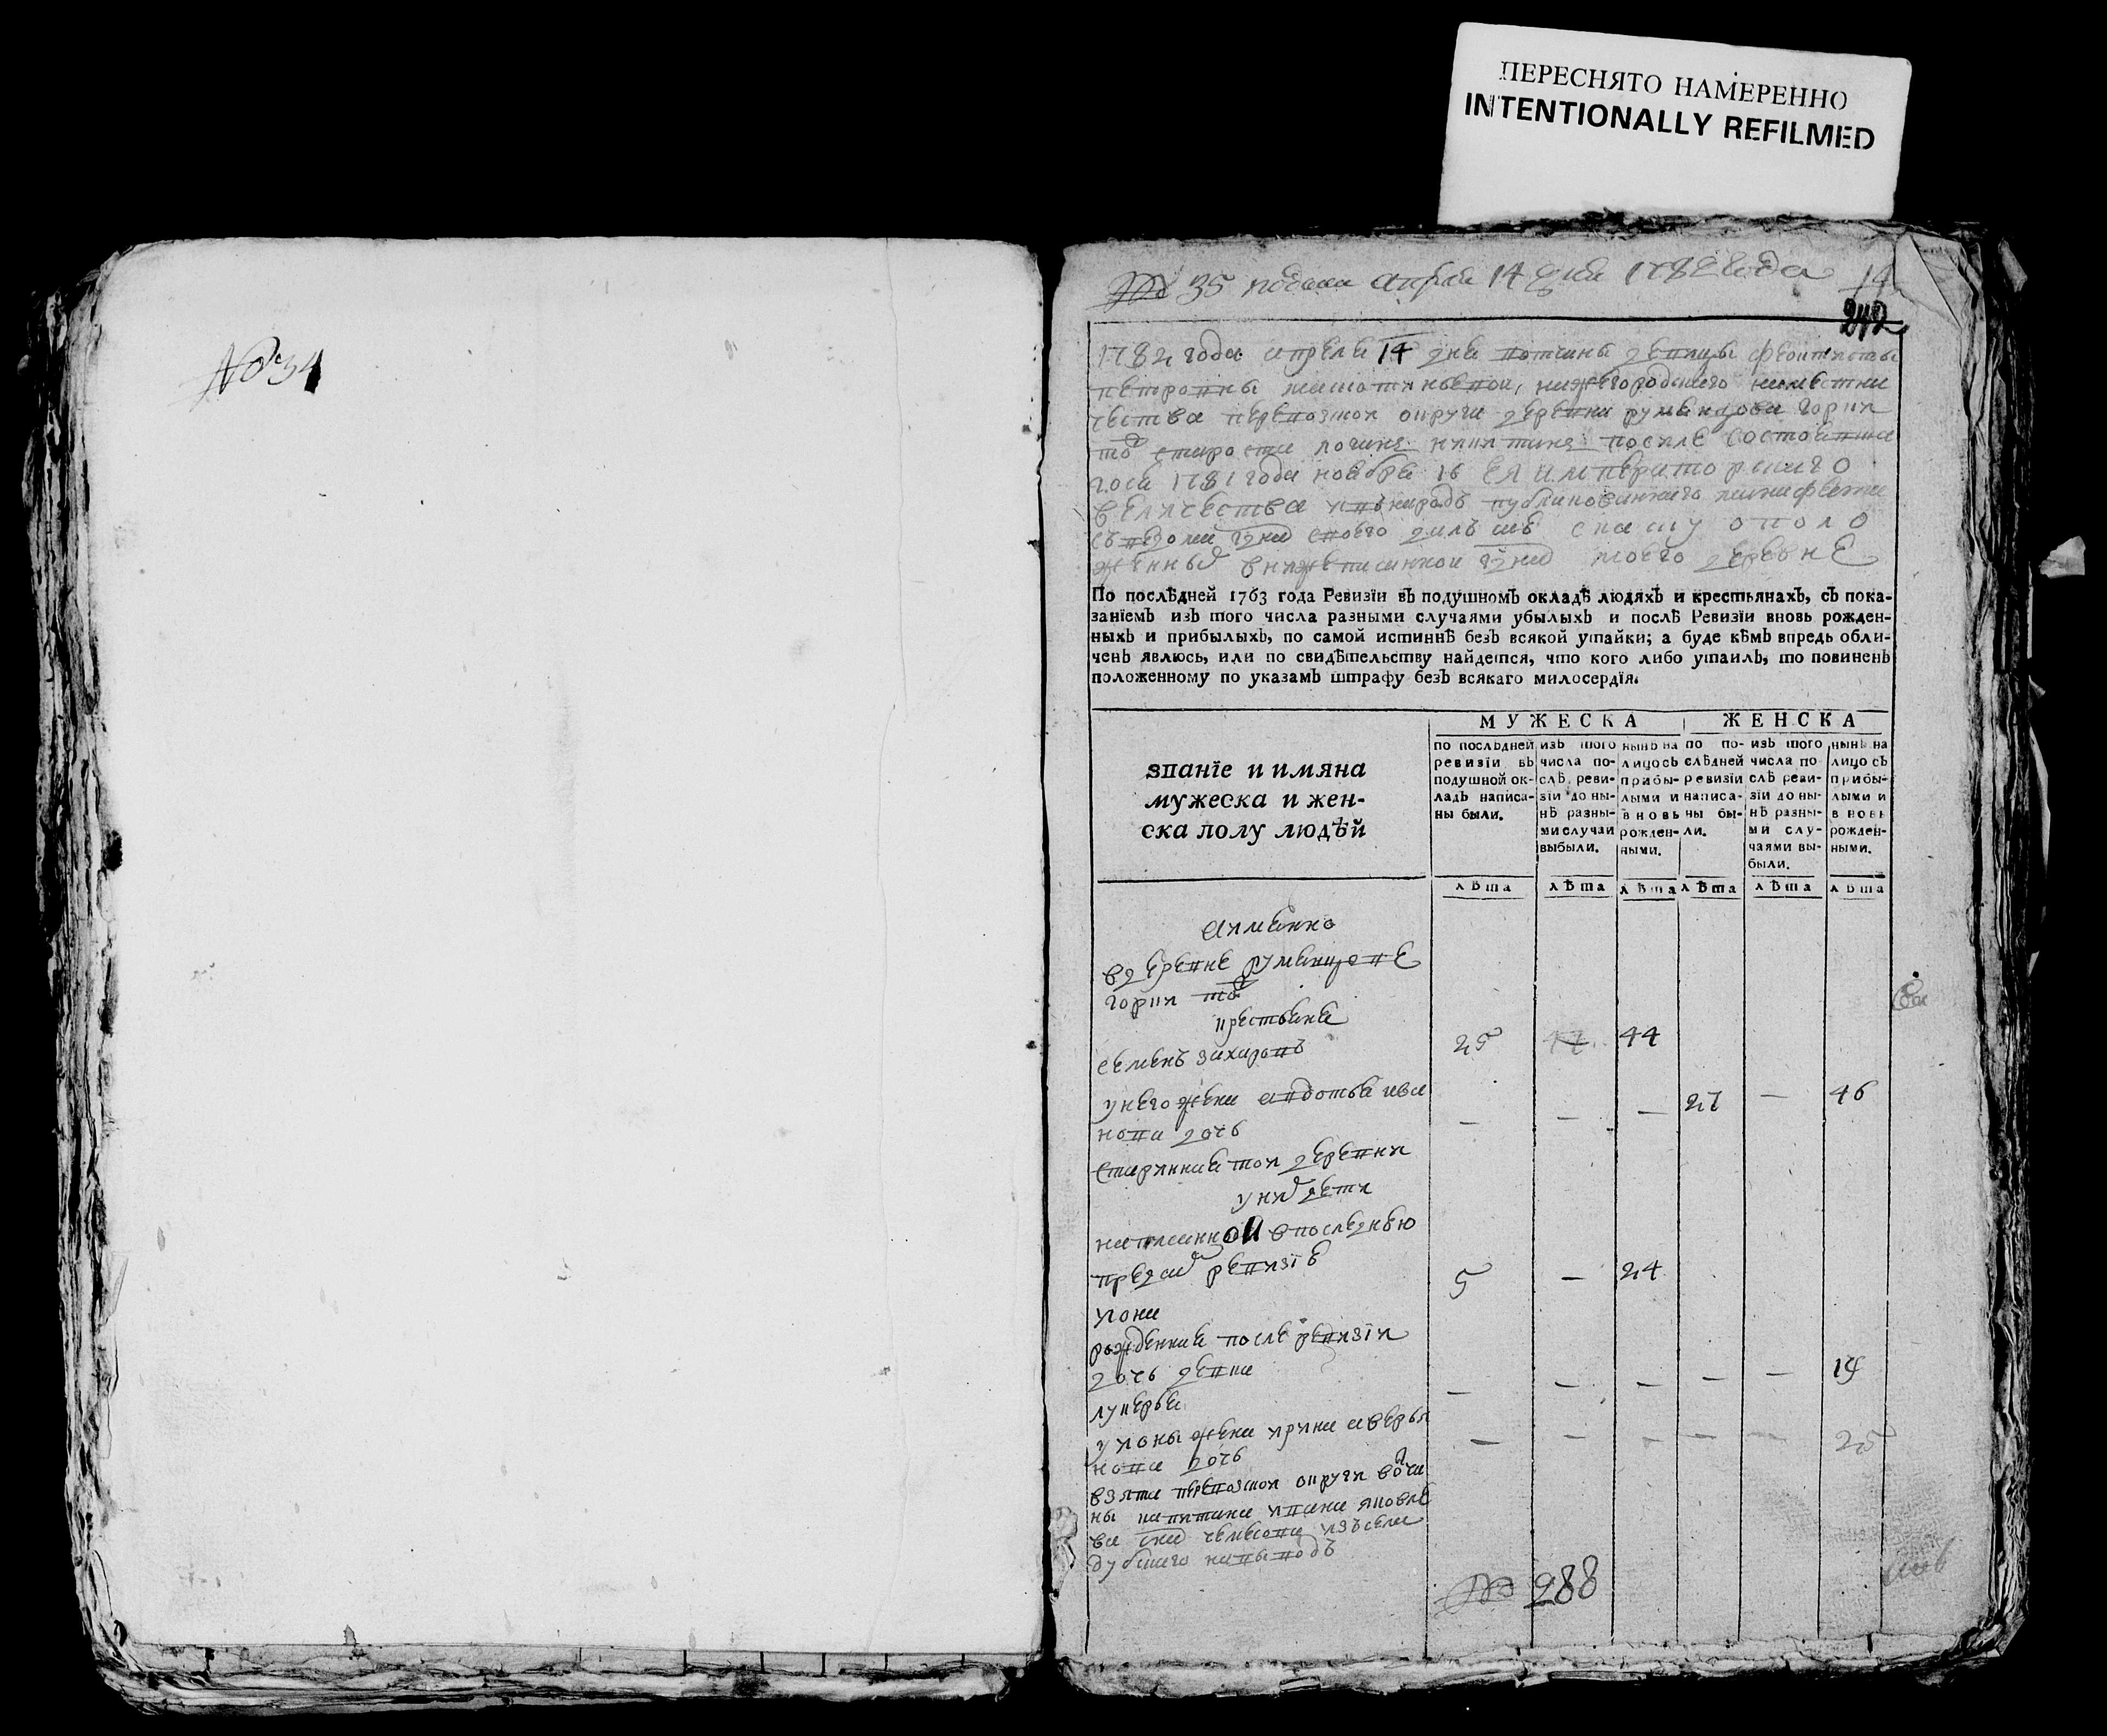 ПЕРЕСНЯТО НАМЕРЕННО
INTENTIONALLY REFILMED
№ 34
№ 35 подана апреля 14 дня 1782 года 14
242
1782 года апреля 14 дня вотчины девицы
петровны нижегородского наместни
чества перевозской округи деревни румянцова горки
тож староста после состоявша
гося 1781 года ноября 16 ея императорскаго
величества в народъ публикованнаго манифеста
своего далъ сию скаску о поло
женныхъ в нижеписанной моего деревне
По послѣдней 1763 года Ревизїи въ подушномъ окладѣ людяхъ и крестьянахъ, съ пока-
занїемъ изъ того числа разными случаями убылыхъ и послѣ Ревизїи вновь рожден-
ныхъ и прибылыхъ, по самой истиннѣ безъ всякой утайки; а буде кѣмъ впредь обли-
ченъ явлюсь, или по свидѣтельству найдется, что кого либо утаилъ, то повиненъ
положенному по указамъ штрафу безъ всякаго милосердїя.
МУЖЕСКА ЖЕНСКА
званїе и имяна
мужеска и жен-
ска полу людѣй
по послѣдней
ревизїи въ
подушной ок-
ладъ написа-
ны были.
изъ того
числа по-
слѣ реви-
зїи до ны-
нѣ разны-
ми случаи
выбыли.
нынѣ на
лицо съ
прибы-
лыми и
вновь
рожден-
ными.
по по-
слѣдней
ревизїи
написа-
ны бы-
ли.
изъ того
числа по
слѣ реви-
зїи до ны-
нѣ разны-
ми слу-
чаями вы-
были.
нынѣ на
лицо съ
прибы-
лыми и
вновь
рожден-
ными.
лѣта лѣта лѣта лѣта лѣта лѣта
а имянно
в деревне румянцове
горки тож
крестьяня
семенъ захаровъ 25 44 44
у него жена авдотья ива
нова дочь — — — 27 — 46
старинная той деревни
у них дети
написанной в последнью
пред сим ревизіе
иона 5 — 24
рожденная после ревизіи
дочь девка
лукерья — — — — — 14
у ионы жена ирина аверья
нова дочь — — — — — 25
взята перевозской округи вотчи
ны капитана ивана яковле
ва изъ села
дубскаго на выводъ
№ 288